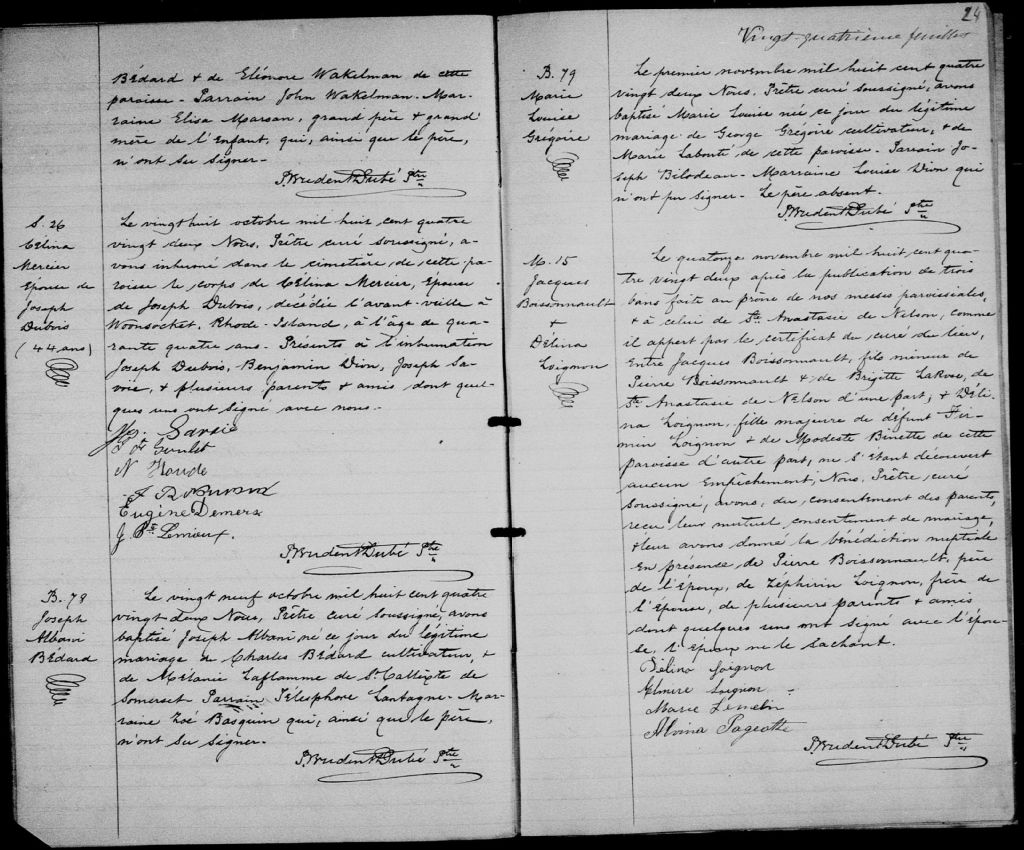 Bédard & de Eléonore Wakelman de cette
paroisse - Parrain John Wakelman. Mar-
raine Elisa Marsan, grand père & grand
mère de l'Enfant, qui, ainsi que le père,
n'ont su signer -
Prudent Dubé Ptre
S. 26
Célina
Mercier
Epouse de
Joseph
Dubois
(44 ans)
Le vingt huit octobre mil huit cent quatre
vingt deux Nous, Prêtre curé soussigné, a-
vons inhumé dans le cimetière de cette pa-
roisse le corps de Célina Mercier, Epouse
de Joseph Dubois, décédée l'avant-veille à
Woonsocket, Rhode-Island, à l'âge de qua-
rante quatre ans - Présents à l'inhumation
Joseph Dubois, Benjamin Dion, Joseph Sa-
voie, & plusieurs parents & amis dont quel-
ques uns ont signé avec nous -
Jos. Savoie
Goulet
N Houde
Eugène Demers
J Bte Lemieux.
Prudent Dubé Ptre
B. 78
Joseph
Albani
Bédard
Le vingt neuf octobre mil huit cent quatre
vingt deux Nous, Prêtre curé soussigné, avons
baptisé Joseph Albani né ce jour du légitime
mariage de Charles Bédard cultivateur, &
de Mélanie Laflamme de St Calixte de
Somerset Parrain Télesphore Lantagne - Mar-
raine Zoé Basquin qui, ainsi que le père,
n'ont su signer -
Prudent Dubé Ptre
24
Vingt-quatrième feuillet
B. 79
Marie
Louise
Grégoire
Le premier novembre mil huit cent quatre
vingt deux Nous, Prêtre curé soussigné, avons
baptisé Marie Louise née ce jour du légitime
mariage de George Grégoire cultivateur, & de
Marie Labonté de cette paroisse - Parrain Jo-
seph Bilodeau - Marraine Louise Dion qui
n'ont pu signer - Le père absent.
Prudent Dubé Ptre
M. 15
Jacques
Bassonnault
&
Délina
Loignon
Le quatorze novembre mil huit cent qua-
tre vingt deux après la publication de trois
bans faite au prône de nos messes paroissiales,
& à celui de Ste Anastasie de Nelson, comme
il appert par le certificat du curé du lieu,
Entre Jacques Boissonnault, fils mineur de
Pierre Boissonnault & de Brigitte LaRose, de
Ste Anastasie de Nelson d'une part; & Déli-
na Loignon, fille majeure de défunt Fir-
min Loignon & de Modeste Binette de cette
paroisse d'autre part; ne s'étant découvert
aucun Empêchement, Nous, Prêtre, curé
soussigné, avons, du consentement des parents,
reçu leur mutuel consentement de mariage,
& leur avons donné la bénédiction nuptiale
En présence de Pierre Boissonnault, père
de l'Epoux, de Zéphirin Loignon, frère de
l'Epouse, de plusieurs parents & amis
dont quelques uns ont signé avec l'épou-
se, l'époux ne le sachant.
Délina Loignon
Elmire Loignon
Marie Lemelin
Alvina Pageotte
Prudent Dubé Ptre